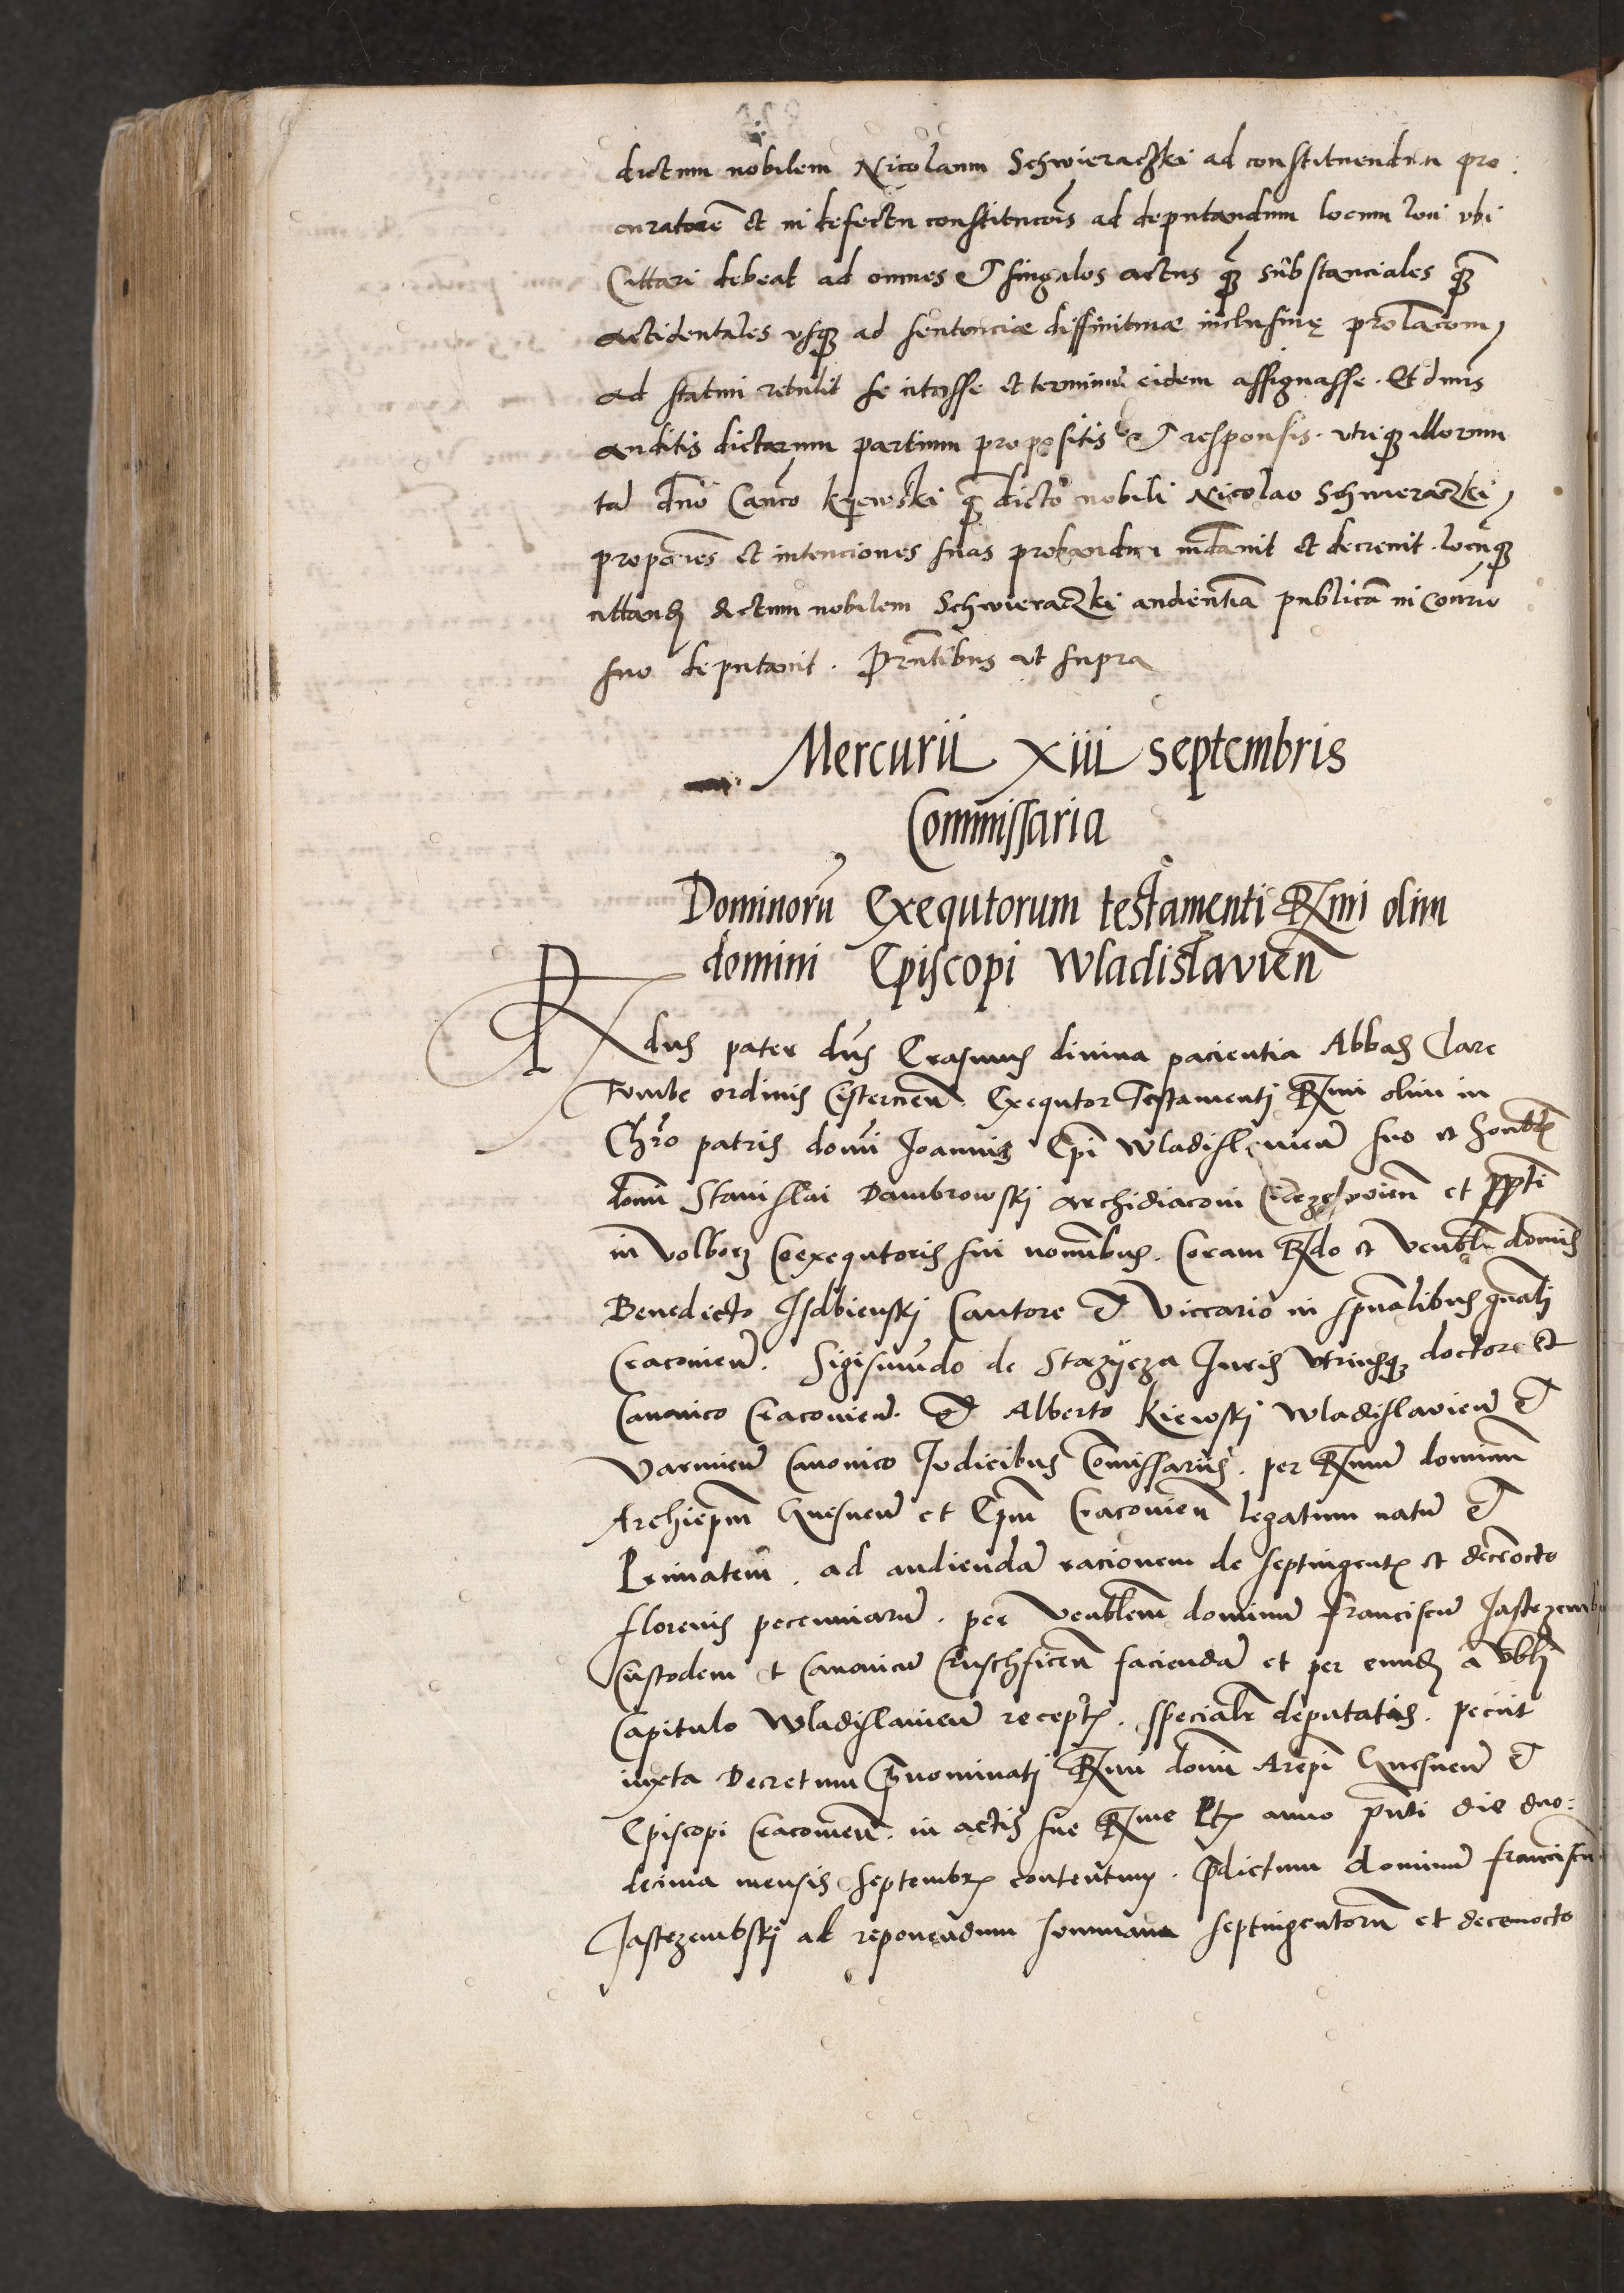 dictum nobilem Nicolaum Schwieraczki ad constituendum pro:
curatorē et in defectu constitucōis ad deputandum locum loci vbi
Cittari debeat ad omnes et singulos actus q̄ substanciales q̄
accidentales vsq ad sentenciae diffinitiuae inclusiuę prolacōm
ad statim retulit se citasse et terminū eidem assignasse. Et dnus
auditis dictarum partium propositis et responsis. vtriq illorum
tā dno Canco Kyewski q̄ dicto nobili Nicolao Schwieraczki
et intenciones suas probandū mdauit et decreuit. locūq
cittandj dictum nobilem Schwieraczki audientiā publicā in Consrio
suo deputauit. Pn̄tibus vt supra
Mercurii xiii septembris
Commissaria
Dominorū Exequtorum testamenti Rmi olim
domini Episcopi Wladislavien̄
Rdus pater dn̄s Erasmus diuina paciencia Abbas Clare
Tumbe ordinis Cistercien̄. Exequtor Testamenti Rmi olim in
Chro patris domi Joannis Epi Wladislauien̄ suo et
domi Stanislai Dambrowskj archidiaconi et ppti
in Volborz Coexequtoris sui nomibus. Coram Rdo et Venbl domis
Benedicto Jsdbienskj Cantore et Viccario in spualibus gnali
Cracouien̄. Sigismūdo de Stazycza Juris Vtriusq doctore et
Canonico Cracouien̄. et Alberto Kiewskj Wladislauien̄ et
Varmien̄ Canonico Judicibus Comissariis. per Rmum dominum
Archiepm Gnesnen̄ et Epm Cracouien̄ legatum natū et
Primatem. ad audiendā racionem de septingent et decēocto
florenis pecuniarū. per Venblem dominū Franciscū Jastrzemb
Custodem et Canonicū Cruschficen̄ faciendā et per eundj a vbli
Capitulo Wladislauien̄ recept. specialr deputatis. peciit
iuxta Decretum Pnominatj Rmi domi Arepi Gnesnen̄ et
Episcopi Cracouien̄. in actis sue Rme Pt anno pn̄ti die duo:
decima mensis Septembr contentum. Pdictum dominū Franciscū
Jastrzembskj ad reponendum summam septingentorū et decemocto